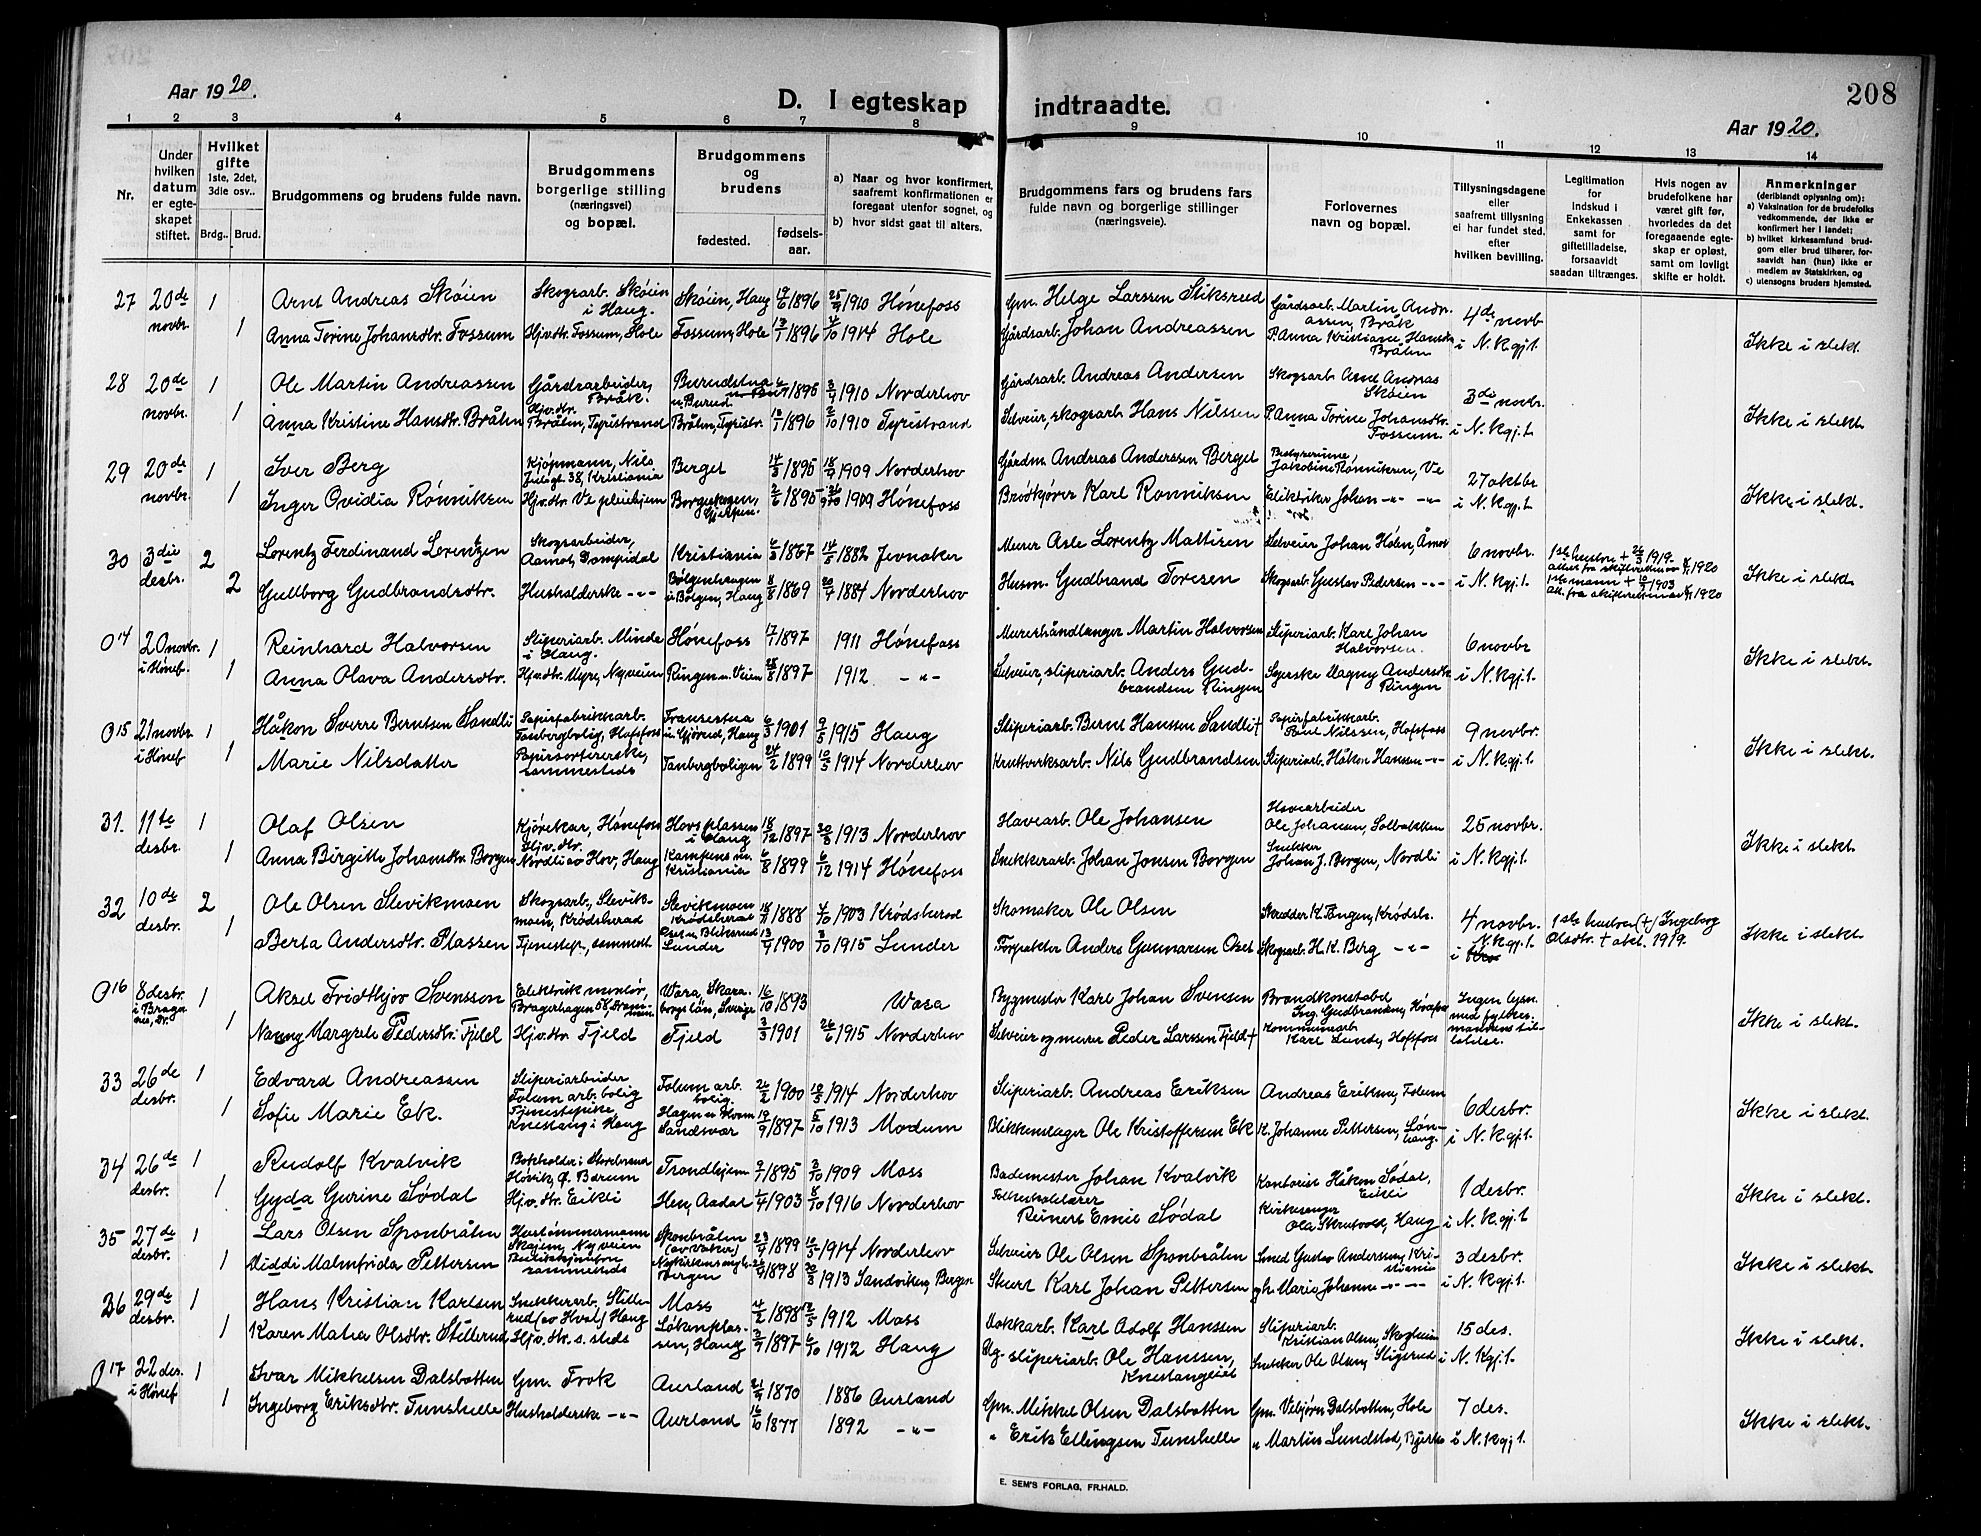 Aar 1920.
D. I egteskap indtraadte.
208
Aar 1920.
1 2 3 4 5 6 7 8 9 10 11 12 13 14
Nr.
Under hvilken datum er egteskapet stiftet.
Hvilket gifte 1ste, 2det, 3die osv..
Brdg.. Brud.
Brudgommens og brudens fulde navn.
Brudgommens borgerlige stilling (næringsvei) og bopæl.
Brudgommens og brudens
fødested. fødselsaar.
a) Naar og hvor konfirmert, saafremt konfirmationen er foregaat utenfor sognet, og
b) hvor sidst gaat til alters.
Brudgommens fars og brudens fars fulde navn og borgerlige stillinger (næringsveie).
Forlovernes navn og bopæl.
Tillysningsdagene eller saafremt tillysning ei har fundet sted, efter hvilken bevilling.
Legitimation for indskud i Enkekassen samt for giftetilladelse, forsaavidt saadan tiltrænges.
Hvis nogen av brudefolkene har været gift før, hvorledes da det foregaaende egteskap er opløst, samt om lovligt skifte er holdt.
Anmerkninger (deriblandt oplysning om):
a) Vaksination for de brudefolks vedkommende, der ikke er konfirmert her i landet;
b) hvilket kirkesamfund brudgom eller brud tilhører, forsaavidt han (hun) ikke er medlem av Statskirken, og
c) utensogns bruders hjemsted.
27 20de novbr. 1 Arnt Andreas Skøien Skogsarb. Skøien i Haug. Skøien, Haug 19/6 1896 25/9 1910 Hønefoss Gm. Helge Larssen Stiksrud Gårdsarb. Martin Andreassen, Bråk 4de novb
1 Anna Torine Johansdtr. Fossum Hjv.dtr. Fossum, Hole Fossum, Hole 1896 1914 Hole Gårdsarb. Johan Andreassen P. Anna Kristiane Hansdtr. Bråten i N.kgj.t. Ikke i slekt.
28 20de novbr. 1 Ole Martin Andreassen Gårdsarbeider, Bråk. 1895 1910 Norderhov Gårdsarb. Andreas Andersen Skogsarb. Arnt Andreas Skøien 3die novbr.
1 Anna Kristine Hansdtr. Bråten Hjv.dtr. Bråten, Tyristrand Bråten, Tyristr. 1896 1910 Tyristrand Selveier, skogsarb. Hans Nilssen P. Anna Torine Johansdtr. Fossum i N.kgj.t. Ikke i slekt.
29 20de novbr. 1 Iver Berg Kjøpmann, Nils Juelsgt 38, Kristiania Berget 14/3 1895 18/9 1909 Norderhov Gårdm. Andreas Anderssen Berget Bestyrerinne, Jakobine Rønniksen, Ve 27 oktbr
1 Inger Ovidia Rønniksen Hjv.dtr. Ve pleiehjem Borgeskogen, Gjerpen. 2/6 1895 1909 Hønefoss Brødkjører Karl Rønniksen Elektriker Johan -"- -"- i N.kgj.t. Ikke i slekt.
30 3die desbr. 2 Lorentz Ferdinand Lorentzen Skogsarbeider, Aamot, Kristiania 6/3 1867 14/5 1882 Jevnaker Murer Asle Lorentz Mattisen Selveier Johan Holen, Åmot 6 novbr. 1ste hustru + 26/3 1919.
2 Gullborg Gudbrandsdtr. Husholderske -"- Bølgenhaugen u. Bølgen, Haug 8/8 1869 20/4 1884 Norderhov Husm. Gudbrand Toresen Skogsarb. Gustav Pedersen -"- i N.kgj.t. 1ste mann + 1903 Ikke i slekt.
O 14 20 novbr. i Hønef. 1 Reinhard Halvorsen Sliperiarb. Minde i Haug. Hønefoss 17/1 1897 1911 Hønefoss Murerhåndlanger Martin Halvorsen Sliperiarb. Karl Johan Halvorsen. 6 novbr
1 Anna Olava Andersdtr. Hjv.dtr. Myre, Nyveien Ringen u. Veien 28/8 1897 1912 -"- Selveier, sliperiarb. Anders Gudbrandsen Ringen Syerske Dagny Andersdtr. Ringen i N.kgj.t. Ikke i slekt.
O 15 21 novbr. i Hønef 1 Håkon Sverre Berntsen Sandli Papirfabrikkarb. Tanbergbolig, Hofsfoss Fransestua u. Gjørud, Haug 6/3 1901 9/5 1915 Haug Sliperiarb. Bernt Hanssen Sandli+ Papirfabrikkarb. Nilssen, Hofsfoss 9 novbr.
1 Marie Nilsdatter Papirsortererske, sammesteds Tanbergboligen 24/2 1899 10/5 1914 Norderhov Kruttverksarb. Nils Gudbrandsen Sliperiarb. Håkon Hanssen -"- i N.kgj.t. Ikke i slekt.
31. 11te desbr. 1 Olaf Olsen Kjørekar, Hønefoss Hovsplassen i Haug 18/12 1897 1913 Norderhov Havearb. Ole Johansen Havearbeider Ole Johansen, Solbakken 25 novbr.
1 Anna Birgitte Johansdtr. Borgen Hjv.dtr. Nordli av Hov, Haug Kampens m. Kristiania 6/8 1899 6/12 1914 Hønefoss Snekkerarb. Johan Jonsen Borgen Snekker Johan J. Borgen, Nordli i N.kgj.t. Ikke i slekt.
32 10de desbr. 2 Ole Olsen Slevikmoen Skogsarb., Slevikmoen, Krødsherad Slevikmoen Krødsherad 18/11 1888 4/10 1903 Krødsherad Skomaker Ole Olsen Skredder K. Tangen, Krødsh. 4 novbr. 1ste hustru (+) Ingeborg Olsdtr. + okt. 1919.
1 Berta Andersdtr. Plassen Tjenestep., sammest. Lunder 13/9 1900 3/10 1915 Lunder Forpakter Anders Gunnarsen Oset Skogsarb. H. K. Berg -"- i N.kgj.t. Ikke i slekt.
O 16 8 desbr. i Bragernes, Dr. 1 Aksel Fridthjov Svensson Elektrisk montør, Bragerhagen 58, Drammen Wara, Skaraborgs län, Sverige 16/10 1893 Wara Bygmester Karl Johan Svensen Brandkonstabel Ing. Gudbrandsen, Hønefoss Ingen lysn. med fylkesmandens tillatelse.
1 Nanny Margrete Pedersdtr. Fjeld Hjv.dtr. Fjeld Fjeld 3/3 1901 26/6 1915 Norderhov Selveier og murer Peder Larssen Fjeld+ Kommunearb. Karl Lunde, Hofsfoss Ikke i slekt.
33 26de desbr. 1 Edvard Andreassen Sliperiarbeider Follum arb. bolig Follum arb. bolig. 26/2 1900 10/5 1914 Norderhov Sliperiarb. Andreas Eriksen Andreas Eriksen, Follum 6 desbr.
1 Sofie Marie Eek. Tjenestepike, Knestang i Haug Sandsvær 19/9 1897 5/10 1913 Modum Blikkenslager Ole Kristoffersen Eek K. Johanne Pettersen, i N.kgj.t. Ikke i slekt.
34 26de desbr. 1 Rudolf Kvalvik Bokholder i Storebrand Høvik, Ø. Bærum Trondhjem 9/1 1895 3/10 1909 Moss Bademester Johan Kvalvik Kontorist Håkon Sødal, Eikli 1 desbr.
1 Gyda Gurine Sødal Hjv.dtr. Eikli Hen, Aadal 1/4 1903 8/10 1916 Norderhov Folkeskolelærer Reinert Emil Sødal Kirkesanger Ola Skrutvold, Haug i N.kgj.t Ikke i slekt.
35 27de desbr. 1 Lars Olsen Sponbråten Hustømmermann Skajem, Nyveien Sponbråten (av Vaker) 23/9 1899 10/5 1914 Norderhov Selveier Ole Olsen Sponbråten Smed Gustav Andersen, Kristiania 3 desbr.
1 Viddi Malmfrida Pettersen sammesteds Bergen 1898 1913 Sandviken, Bergen Stuert Karl Johan Pettersen gh. Maria Johanne -"- i N.kgj.t. Ikke i slekt.
36 29de desbr. 1 Hans Kristian Karlsen Snekkerarb. Stillerud (av Hval) Haug Moss 4/2 1898 12/5 1912 Moss Dokkarb. Karl Adolf Hanssen Sliperiarb. Kristian Olsen, Skogheim 15 des.
1 Karen Matea Olsdtr. Stillerud Hjv.dtr. s. steds Løkenplassen, Haug 3/9 1897 6/10 1912 Haug Slg. sliperiarb. Ole Hanssen, Knestangeiet Snekker Ole Olsen, Stigsrud i N.kgj.t. Ikke i slekt.
O 17 22 des. i Hønef 1 Ivar Mikkelsen Dalsbotten Gm. Trok Aurland 21/9 1870 1886 Aurland Gm. Mikkel Olsen Dalsbotten Gm. Vebjørn Dalsbotten, Hole 7 des.
1 Ingeborg Eriksdtr. Tunshelle Husholderske -"- Aurland 16/10 1877 1892 -"- " Erik Ellingsen Tunshelle " Martin Lundstad, Bjerke i N.kgj.t. Ikke i slekt.
E. SEM'S FORLAG, FR.HALD.